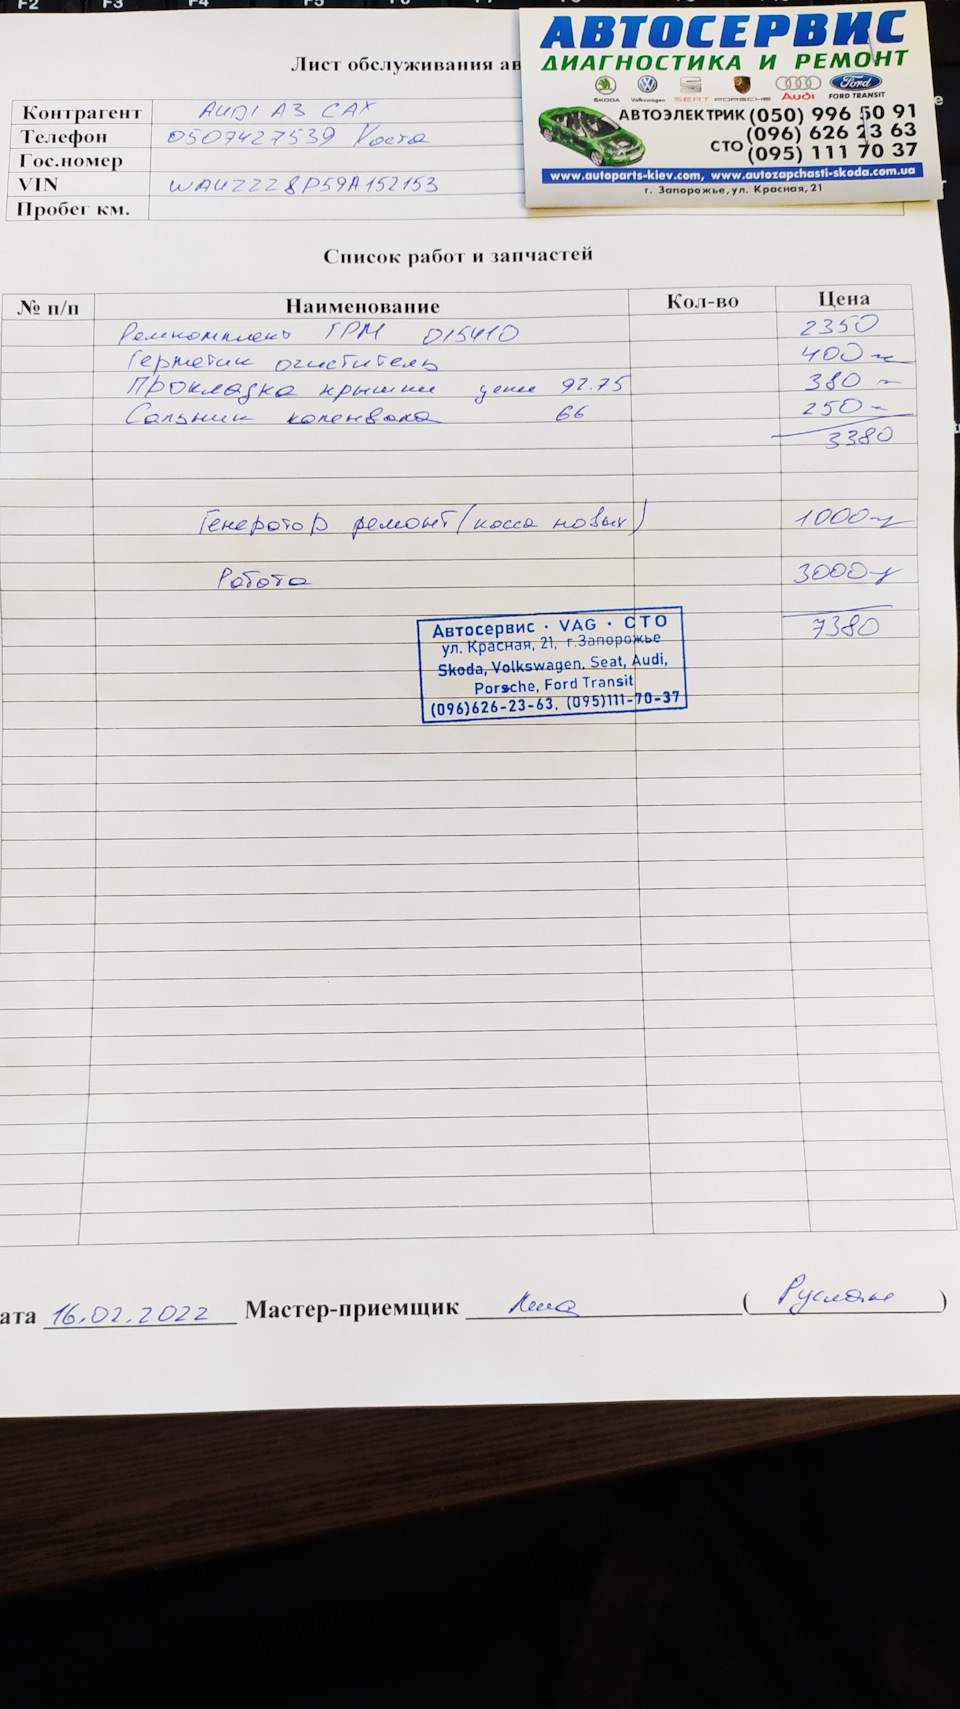 F2 F3 F4 F5
Лист обслуживания ав
АВТОСЕРВИС
ДИАГНОСТИКА И РЕМОНТ
ŠKODA Volkswagen SEAT PORSCHE Audi FORD TRANSIT
Ford
АВТОЭЛЕКТРИК (050) 996 50 91
(096) 626 23 63
СТО (095) 111 70 37
www.autoparts-kiev.com, www.autozapchasti-skoda.com.ua
г. Запорожье, ул. Красная, 21
Контрагент AUDI A3 CAX
Телефон 0507427539 Коста
Гос.номер
VIN WAUZZZ8P59A152153
Пробег км.
Список работ и запчастей
№ п/п Наименование Кол-во Цена
Ремкомплект ГРМ 015410 2350
Герметик очиститель 400
Прокладка крышки цепи 92.75 380
Сальник коленвала 66 250
3380
Генератор ремонт (косса новых) 1000
Работа 3000
7380
Автосервис · VAG · СТО
ул. Красная, 21, г.Запорожье
Skoda, Volkswagen, Seat, Audi,
Porsche, Ford Transit
(096)626-23-63, (095)111-70-37
ата 16.02.2022 Мастер-приемщик (Руслан)